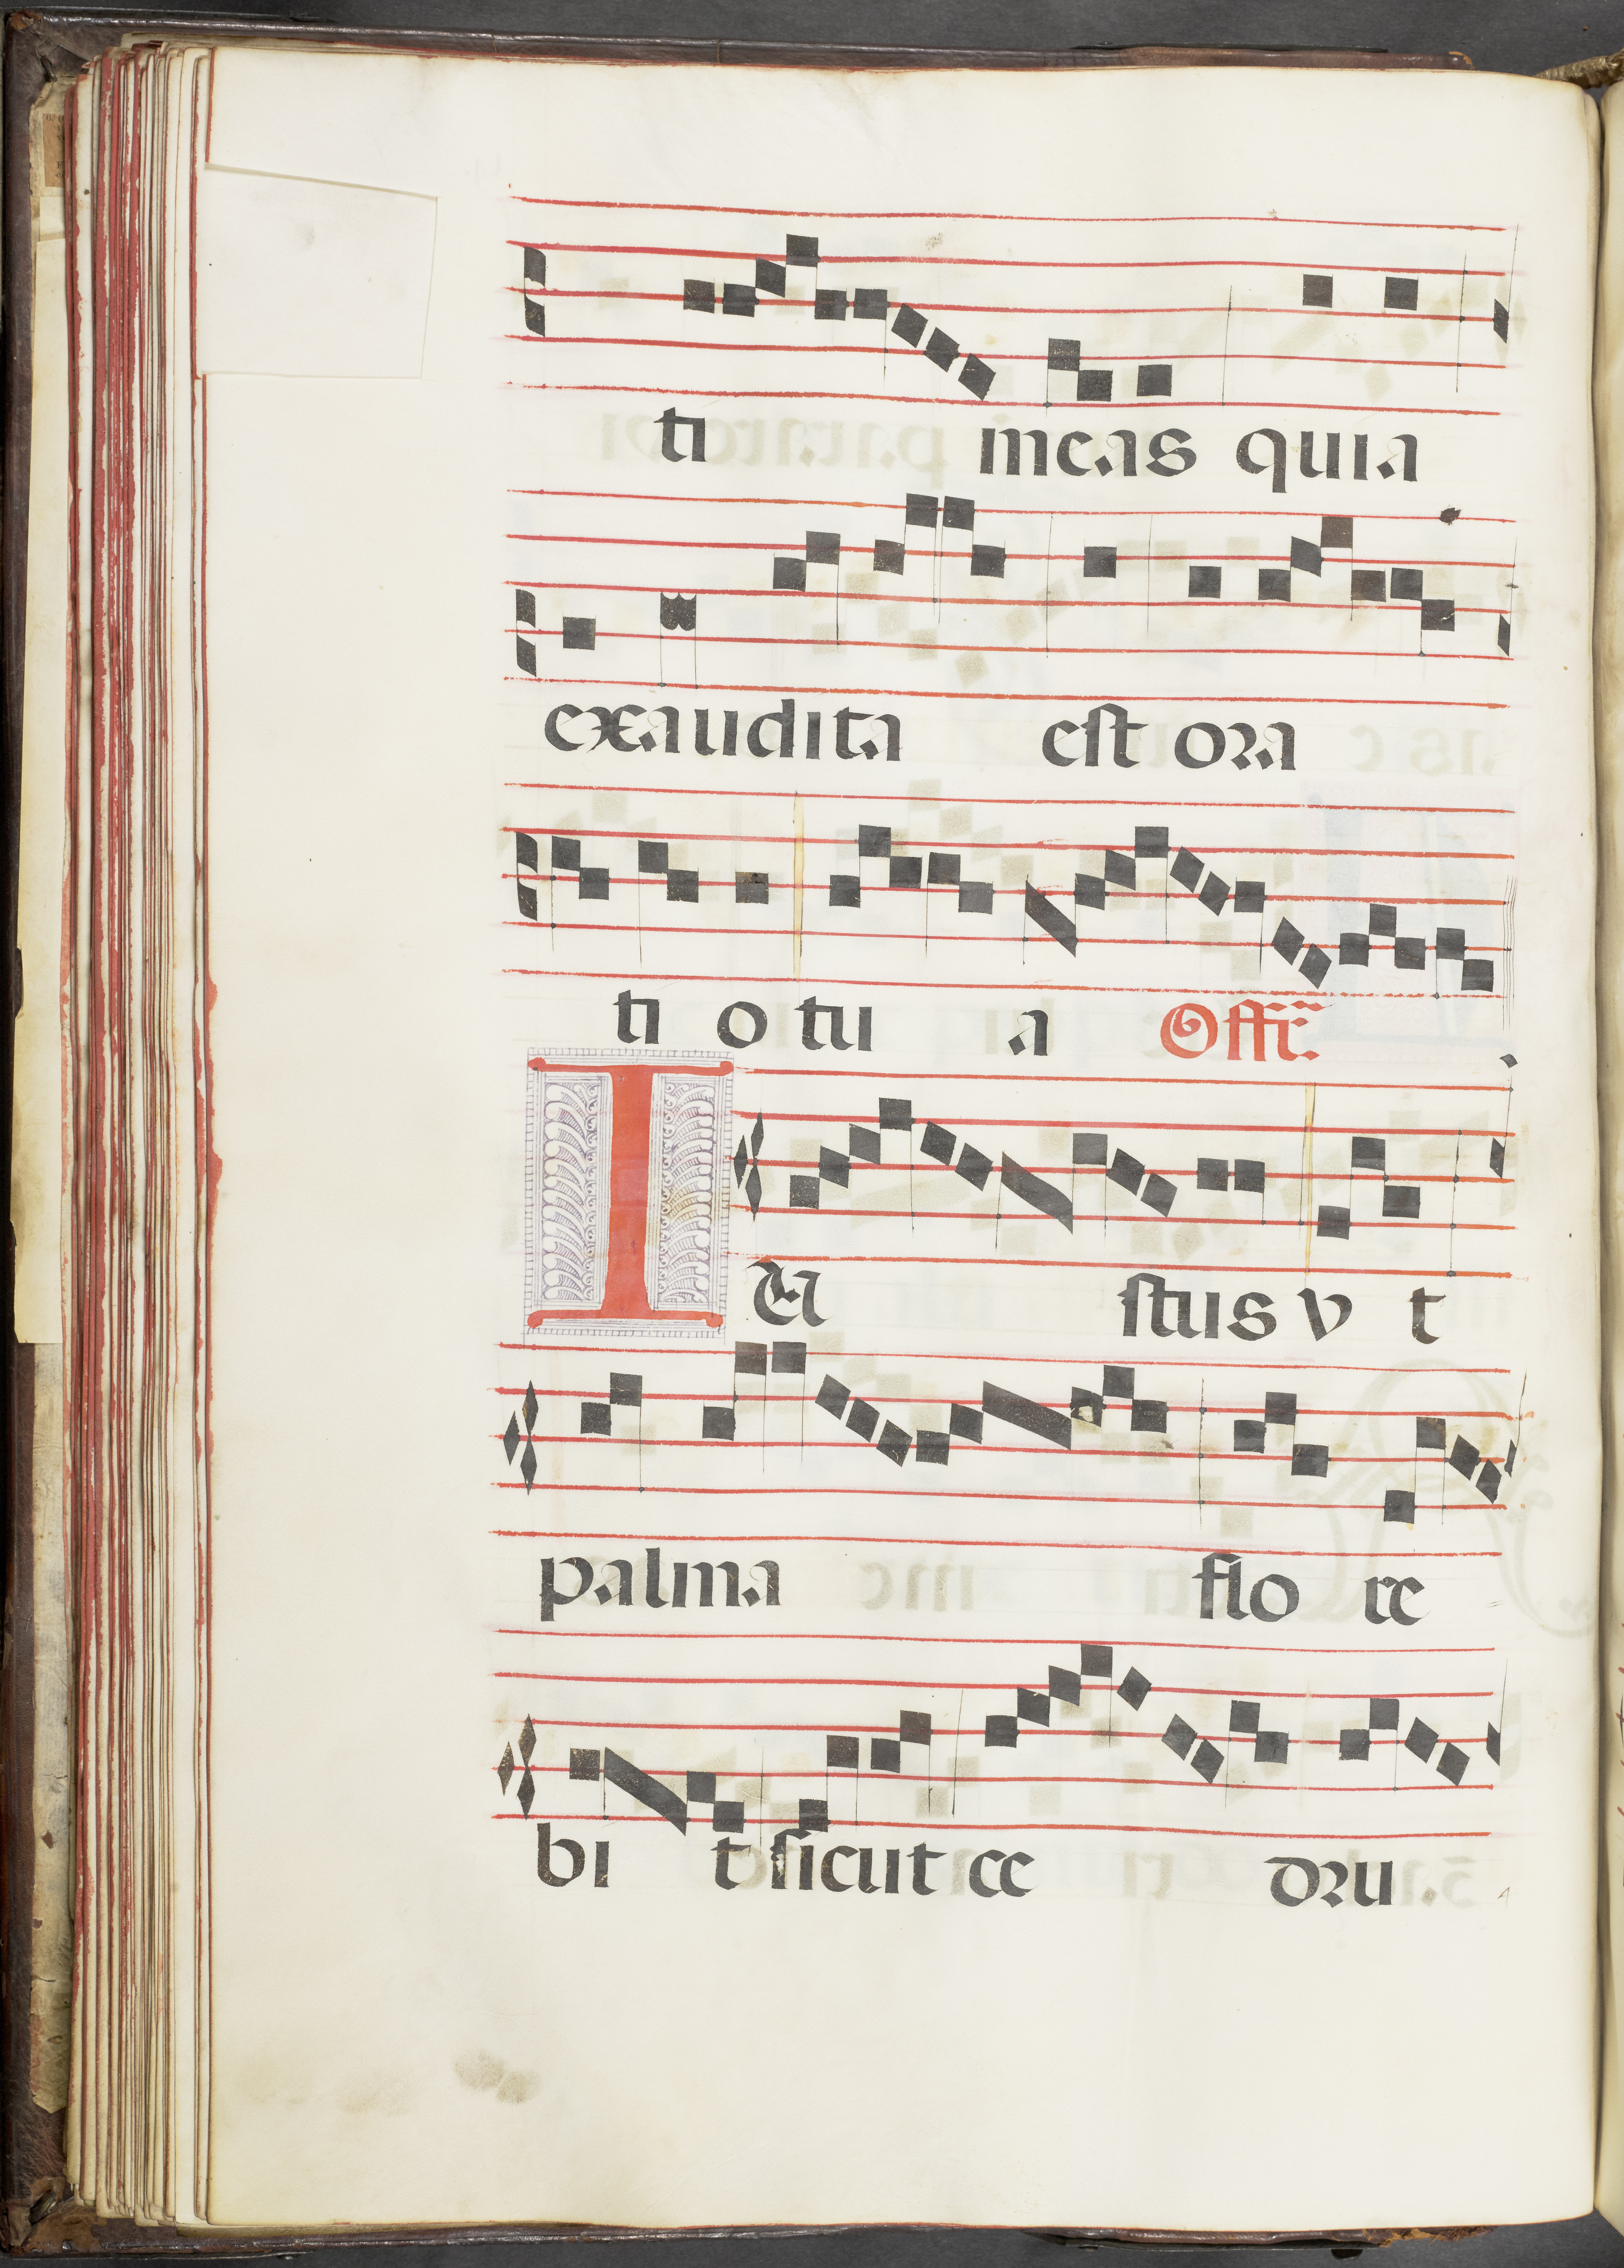 ti meas quia
exaudita est ora
ti o tu a Offr̃.
IU stus v t
palma flo re
bi t sicut ce dru